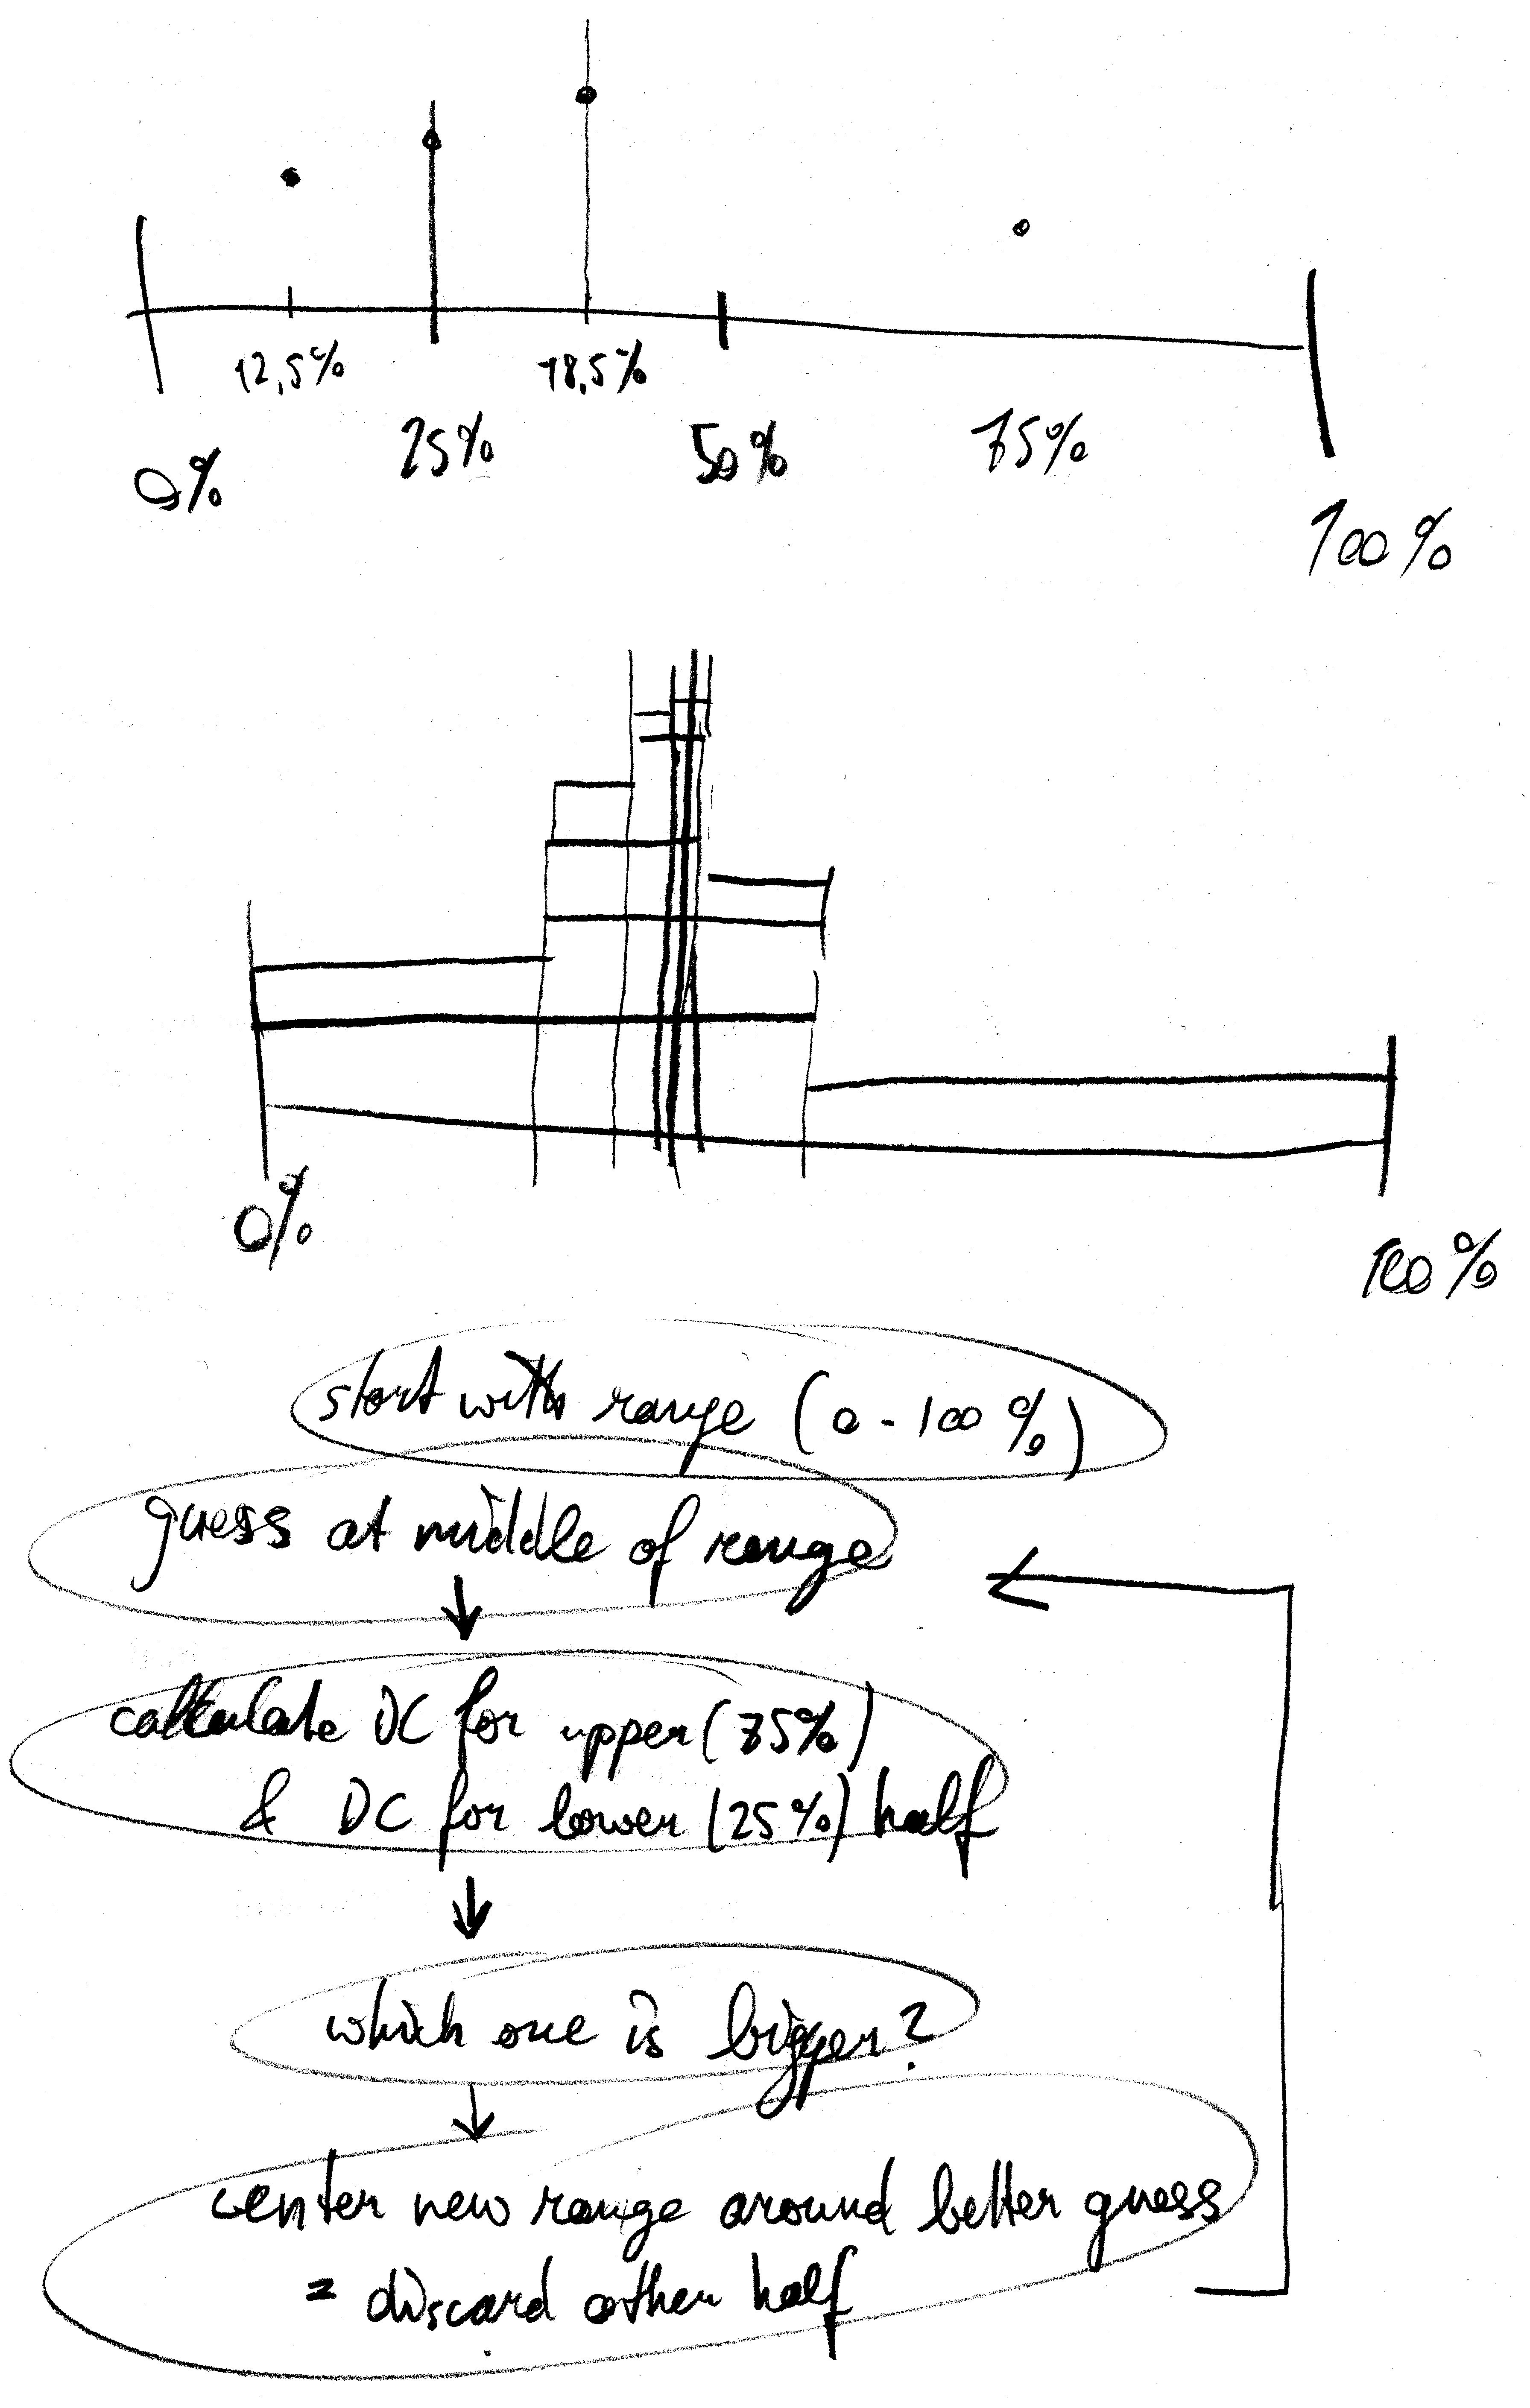 12,5% 18,5%
0% 25% 50% 75% 100%
0% 100%
start with range (0-100%)
guess at middle of range
calculate DC for upper (75%)
& DC for lower (25%) half
which one is bigger?
center new range around better guess
= discard other half